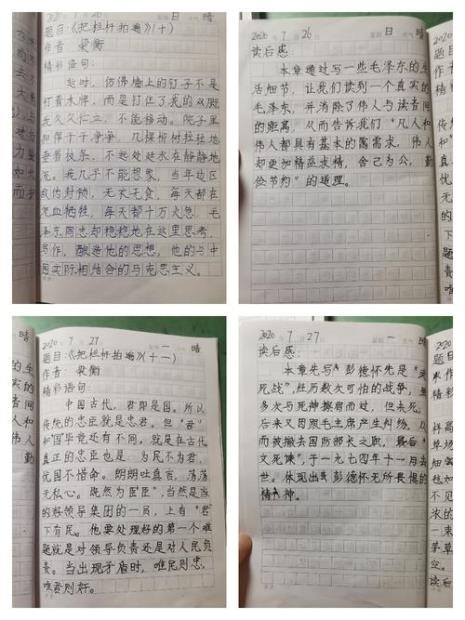 2020 7 26 日 晴
题目:《把栏杆拍遍》(十)
作者 梁衡
精彩语句:
这时,仿佛墙上的钉子不是
打着木牌,而是打住了我的双脚
我久久伫立,不能移动。院子里
扫得干干净净,几棵柳树轻轻地
垂着枝条,不远处延水在静静地
流。我几乎不能想象,当年边区
敌伪封锁,无衣无食,每天都在
流血牺牲,每天都十万火急,毛
泽东同志却稳稳地在这里思考、
写作,酿造他的思想,他的与中
国实际相结合的马克思主义。
2020 7 26 日 晴
读后感
本章通过写一些毛泽东的生
活细节,让我们读到一个真实的
毛泽东,并消除了伟人与读者间
的距离,从而告诉我们“凡人和
伟人都具有基本的需求,伟人
却更加精益求精,舍己为公,勤
俭节约”的道理。
2020 7 27 一 晴
题目:《把栏杆拍遍》(十一)
作者: 梁衡
精彩语句:
中国古代,君即是国。所以
传统的忠臣就是忠君。但“君”
和国毕竟还有不同。就是在古代
真正的忠臣也是 为民不为君,
忧国不惜命。朗朗吐真言,荡荡
无私心。既然为臣,当然是当
的领导集团的一员,上有“君”
下有民。他要处理好的第一个难
题就是对领导负责还是对人民负
责。当出现矛盾时,唯民则忠,
唯君则奸。
2020 7 27 一 晴
读后感:
本章先写彭德怀先是“武
死战”,经历数次可怕的战争,
多次与死神擦肩而过,但去死。
后来又因跟毛主席产生纠纷,从
而被撤去国防部长之职,最后“
文死谏”,于一九七四年十一月去
世。体现出彭德怀无所畏惧的
精神。